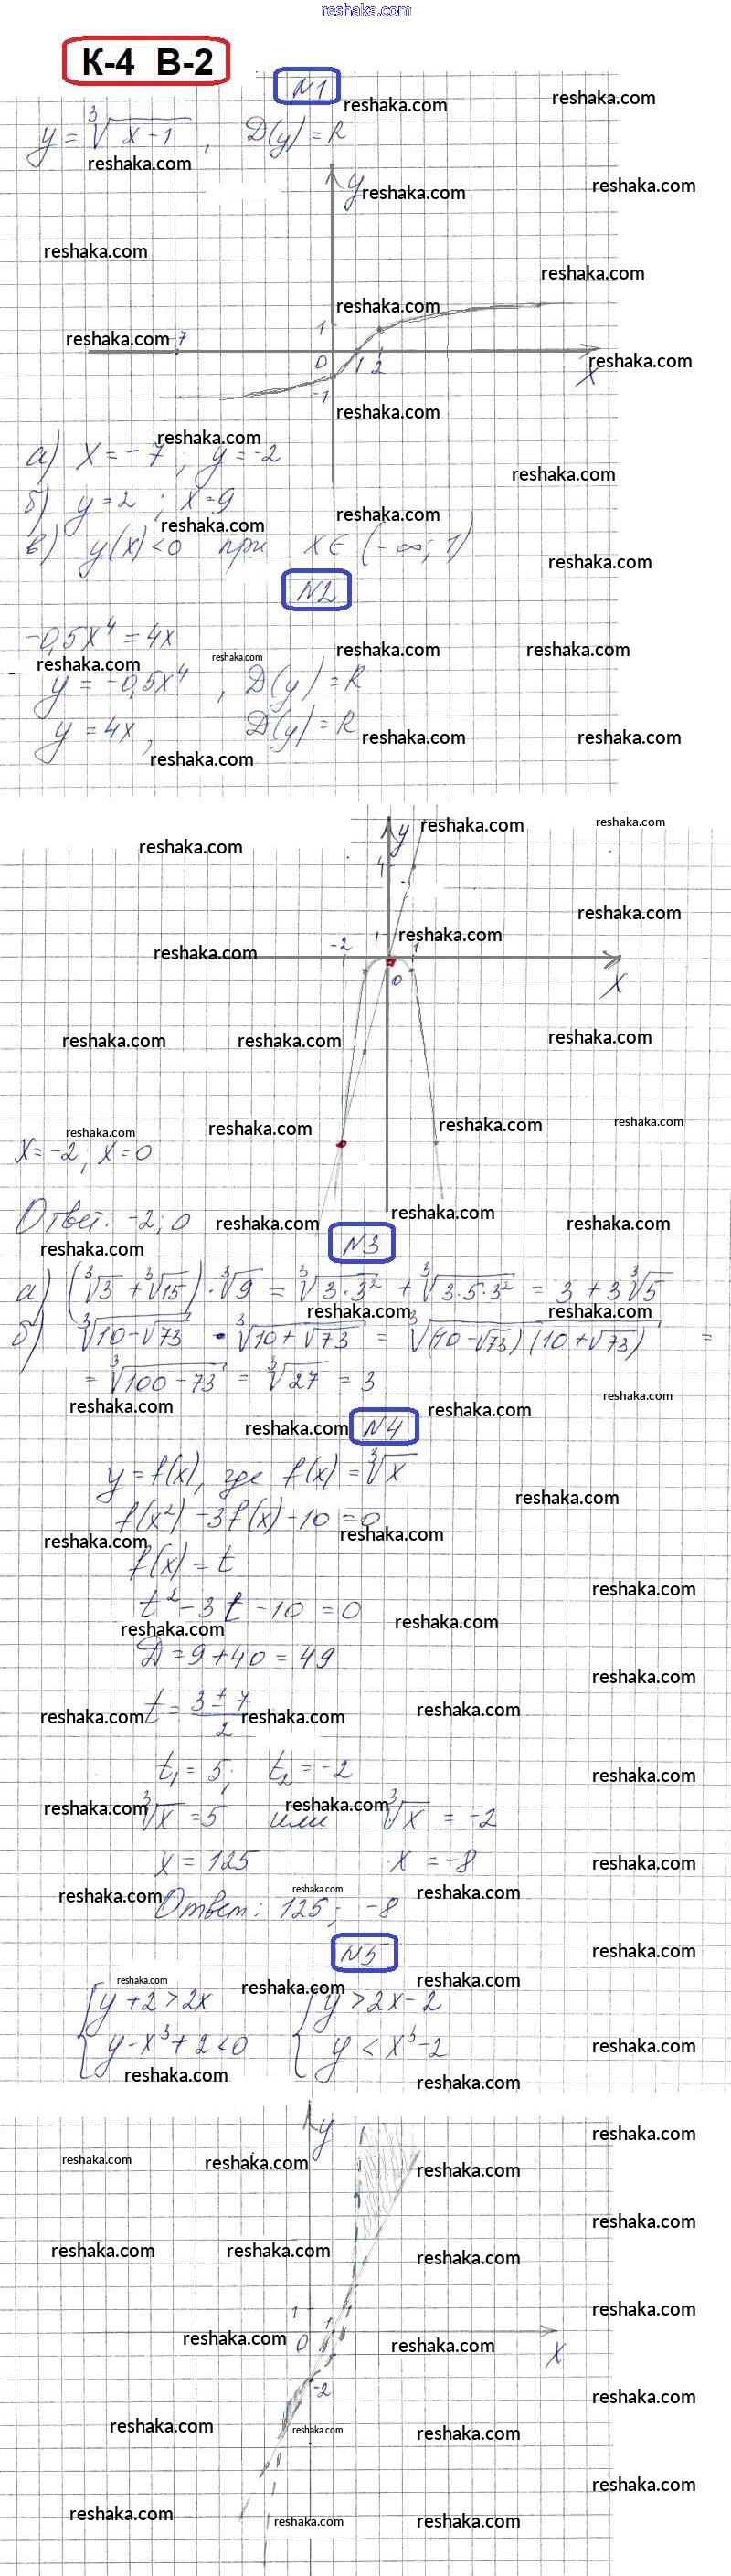 reshaka.com
К-4 В-2
N1
y = ∛(x-1), D(y) = R
y
1
-7
0 1 2
-1
x
а) x = -7; y = -2
б) y = 2; x = 9
в) y(x) < 0 при x ∈ (-∞; 1)
N2
-0,5x⁴ = 4x
y = -0,5x⁴, D(y) = R
y = 4x, D(y) = R
y
4
1
-2 1
0
x
x = -2; x = 0
Ответ: -2; 0
N3
а) (∛3 + ∛15) · ∛9 = ∛(3·3²) + ∛(3·5·3²) = 3 + 3∛5
б) ∛(10-√73) · ∛(10+√73) = ∛((10-√73)(10+√73)) =
= ∛(100-73) = ∛27 = 3
N4
y = f(x), где f(x) = ∛x
f(x²) - 3f(x) - 10 = 0
f(x) = t
t² - 3t - 10 = 0
Д = 9 + 40 = 49
t = (3 ± 7)/2
t₁ = 5; t₂ = -2
∛x = 5 или ∛x = -2
x = 125 x = -8
Ответ: 125; -8
N5
{ y + 2 > 2x { y > 2x - 2
{ y - x³ + 2 < 0 { y < x³ - 2
y
1
0 1
x
-2
reshaka.com